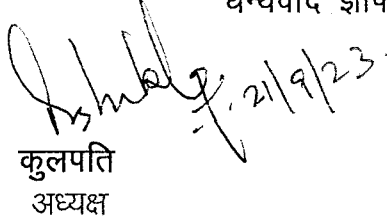 धन्यवाद ज्ञाप
21/9/23
कुलपति
अध्यक्ष